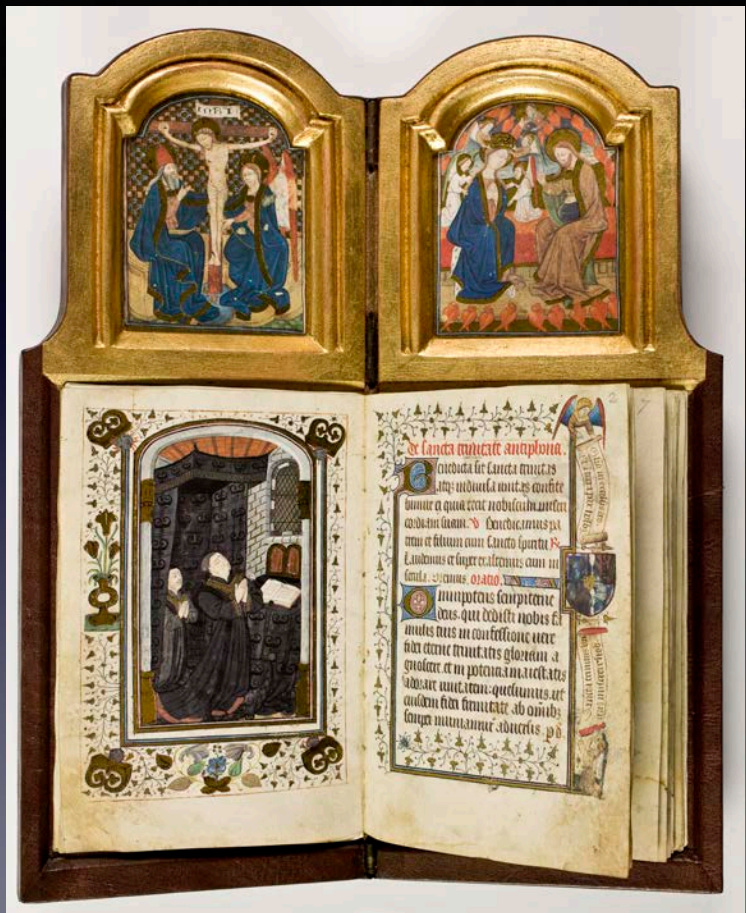 2
de sancta trinitate antiphona.
Benedicta sit sancta trinitas
atq indiuisa unitas confite
bimur ei quia fecit nobiscum miseri
cordiam suam. V Benedicamus pa
trem et filium cum sancto spiritu R
Laudemus et super exaltemus eum in
secula. Oremus. oratio
Omnipotens sempiterne
deus. qui dedisti nobis fa
mulis tuis in confessione uere
fidei eterne trinitatis gloriam a
gnoscere et in potencia maiestatis
adorare unitatem: quesumus ut
eiusdem fidei firmitate ab omibus
semper muniamur aduersis. p d.